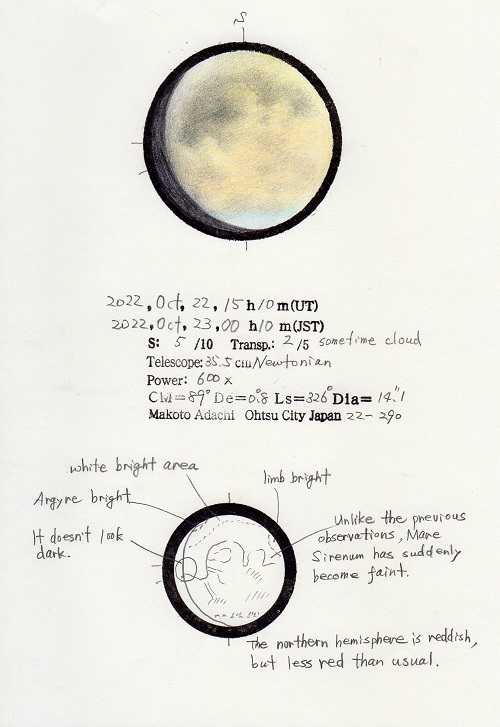 S
2022, Oct, 22, 15 h 10 m(UT)
2022, Oct, 23, 00 h 10 m(JST)
S: 5 /10 Transp.: 2 /5 sometime cloud
Telescope: 35.5 cm Newtonian
Power: 600 x
CM=89° De=0.8 Ls=326° Dia= 14."1
Makoto Adachi Ohtsu City Japan 22-290
white bright area
limb bright
Argyre bright
It doesn't look
dark.
Unlike the previous
observations, Mare
Sirenum has suddenly
become faint.
The northern hemisphere is reddish,
but less red than usual.